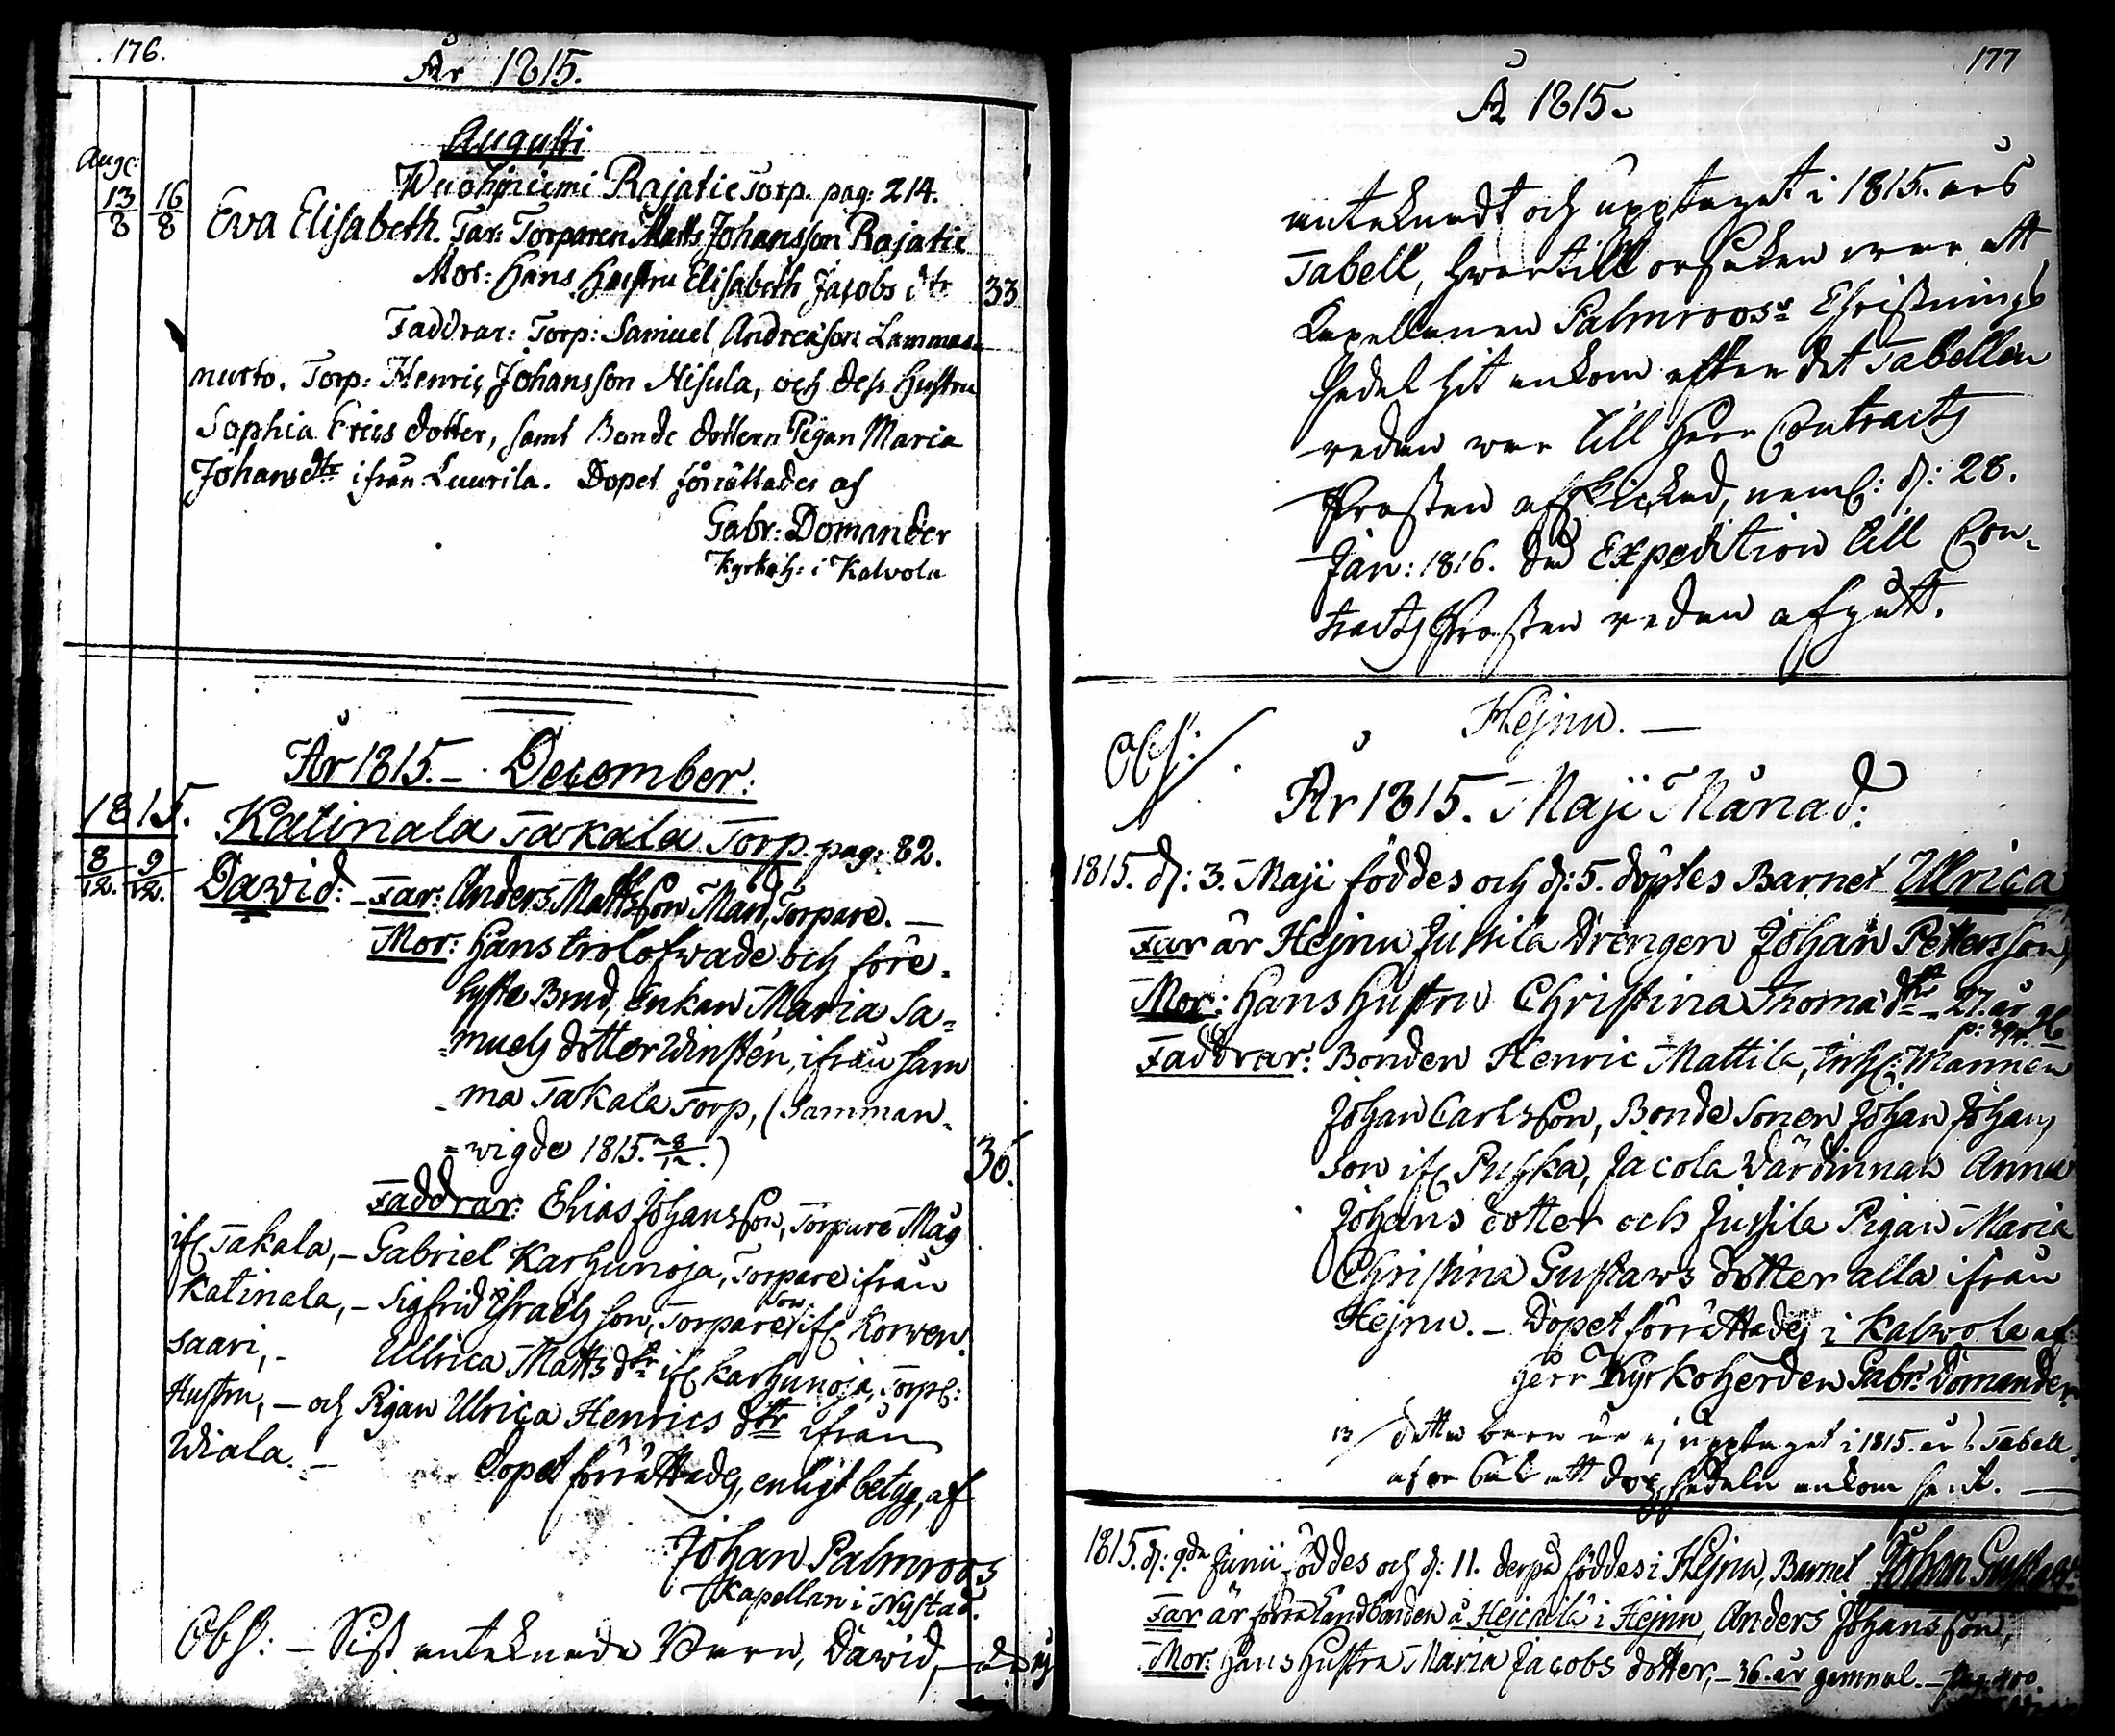 176.
År 1815.
Augusti
Aug:
13/8 16/8
Rajatie Torp. pag: 214.
Eva Elisabeth. Far: Torparen Matts Johansson Rajatie
Mor: Hans Hustru Elisabeth Jacobs dtr 33
Faddrar: Torp: Samuel Andreasson Lammas-
nurto. Torp: Henric Johansson Nisula, och dess Hustru
Sophia Erics dotter, samt Bonde dottern Pigan Maria
Johans dtr ifrån Luurila. Dopet förrättades af
Gabr: Domander
Kyrkoh: i Kalvola
År 1815. – December:
1815.
Katinala Takala Torp. pag: 82.
8/12. 9/12.
David: – Far: Anders Mattsson Man, Torpare. –
Mor: Hans trolofwade och före-
lyste Brud, Enkan Maria Sa=
=muels dotter Winstén, ifrån sam
ma Takala Torp, (Samman-
=wigde 1815. 8/12.) 36.
Faddrar: Elias Johansson, Torpare Måg
ifr Takala, – Gabriel Karhunoja, Torpare ifrån
Katinala, – Sigfrid Israels son, Torpare son ifr Korwen-
saari, – Ullrica Matts dtr ifr Karhunoja, Torp:
Hustru, – och Pigan Ulrica Henrics dtr ifrån
Wiala. – Dopet förrättades, enligt betyg, af
Johan Palmroos
Kapellan i Nystad.
Obs: – Sist antecknade Barn, David, – är ej
177
År 1815.
antecknadt och upptaget i 1815. års
Tabell, hwartill orsaken war att
Capellanen Palmroos's Christnings
Sedel hit ankom efter det Tabellen
redan war till Herr Contracts
Prosten afskickad, neml: d: 28.
Jan: 1816. då Expedition till Con-
tracts Prosten redan afgått.
Hejnu. –
Obs:
År 1815. Maji Månad:
1815. d: 3. Maji föddes och d: 5. döptes Barnet Ulrica
Far är Hejnu Jussila Drengen Johan Pettersson,
Mor: Hans Hustru Christina Thomæ dtr – 27. år
Faddrar: Bonden Henric Mattila, Mannen
Johan Carlsson, Bonde Sonen Johan Johans
son ifr Puska, Jacola Värdinnan Anna
Johans dotter och Jussila Pigan Maria
Christina Gustaws dotter alla ifrån
Hejnu. – Dopet förrättades i Kalwola af
Herr Kyrkoherden Gabr: Domander.
Detta barn är ej upptaget i 1815. års Tabell
af orsak att dop sedeln ankom sent. –
1815. d: 9de Junii föddes och d: 11. derpå föddes i Hejnu, Barnet Johan Gustaf.
Far är förra Landbonden å i Hejnu, Anders Johansson,
Mor: Hans Hustru Maria Jacobs dotter, – 36. år gammal. – pag: 400.